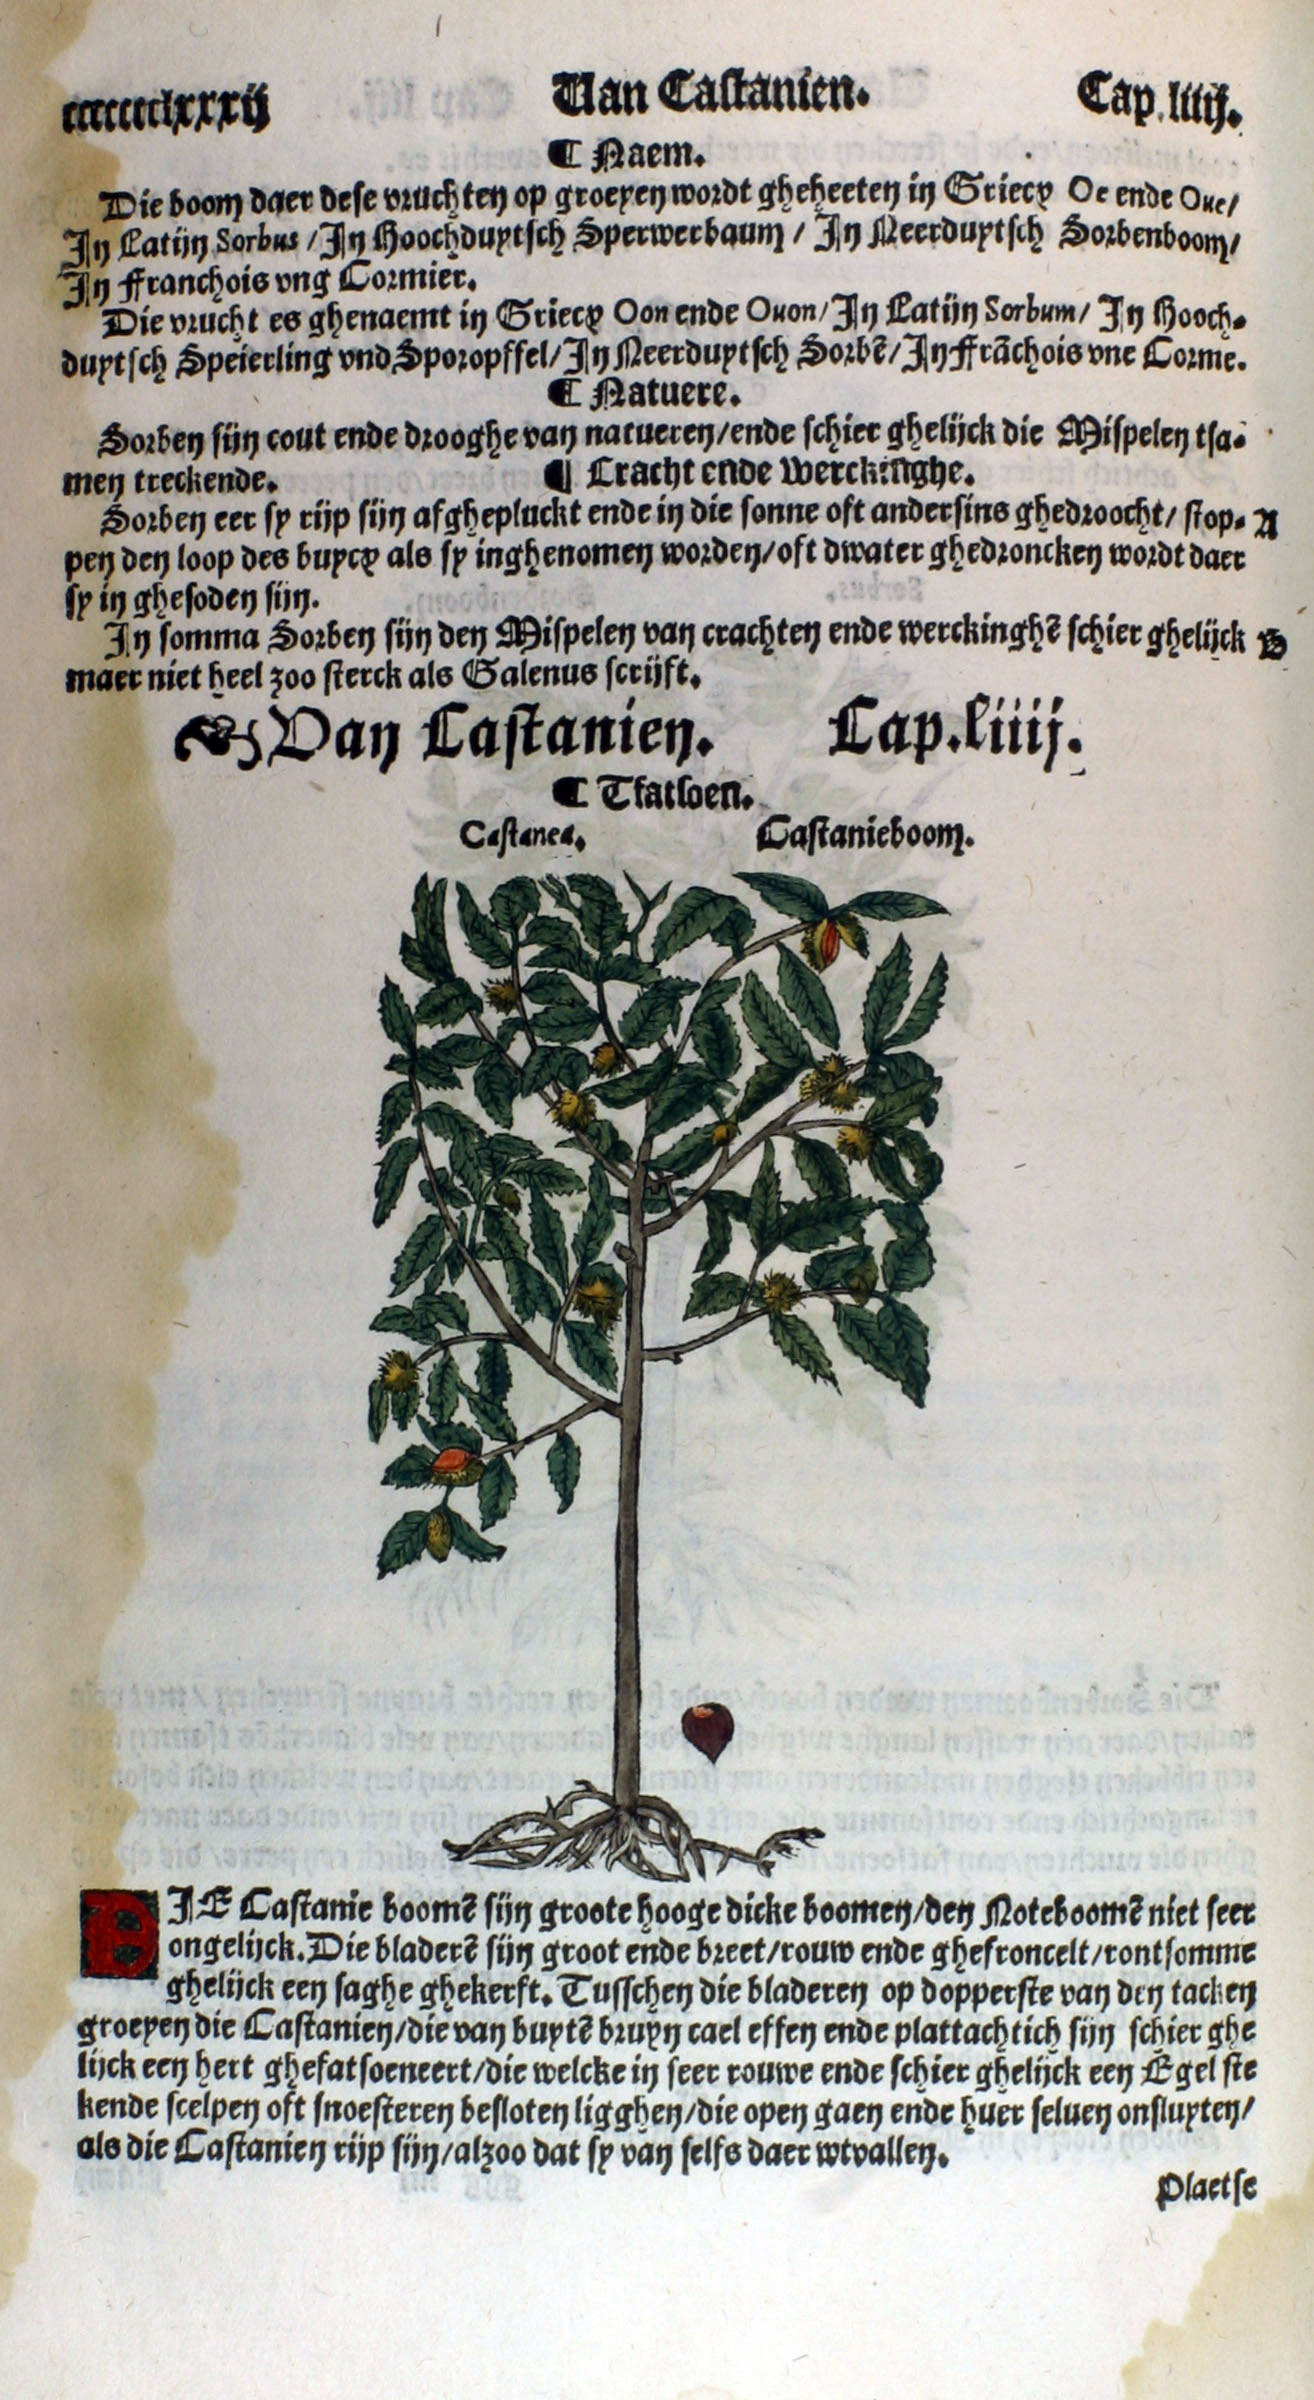 ccccccclxxxij Van Castanien. Cap.liiij.
¶ Naem.
Die boom daer dese vruchten op groeyen wordt gheheeten in Griecx Oe ende Oue/
In Latijn Sorbus / In Hoochduytsch Sperwerbaum / In Neerduytsch Sorbenboom/
In Franchois vng Cormier.
Die vrucht es ghenaemt in Griecx Oon ende Ouon/ In Latijn Sorbum/ In Hooch-
duytsch Speierling vnd Sporopffel/ In Neerduytsch Sorbē/ In Frāchois vne Corme.
¶ Natuere.
Sorben sijn cout ende drooghe van natueren/ende schier ghelijck die Mispelen tsa-
men treckende. ¶ Cracht ende Werckinghe.
Sorben eer sy rijp sijn afghepluckt ende in die sonne oft andersins ghedroocht/ stop- A
pen den loop des buycx als sy inghenomen worden/oft dwater ghedroncken wordt daer
sy in ghesoden sijn.
In somma Sorben sijn den Mispelen van crachten ende werckinghē schier ghelijck B
maer niet heel zoo sterck als Galenus scrijft.
Van Castanien. Cap.liiij.
¶ Tfatsoen.
Castanea. Castanieboom.
DIE Castanie boomē sijn groote hooge dicke boomen/den Noteboomē niet seer
ongelijck. Die bladerē sijn groot ende breet/rouw ende ghefroncelt/rontsomme
ghelijck een saghe ghekerft. Tusschen die bladeren op dopperste van den tacken
groeyen die Castanien/die van buytē bruyn cael effen ende plattachtich sijn schier ghe
lijck een hert ghefatsoeneert/die welcke in seer rouwe ende schier ghelijck een Egel ste
kende scelpen oft snoesteren besloten ligghen/die open gaen ende huer seluen onsluyten/
als die Castanien rijp sijn/alzoo dat sy van selfs daer wtvallen.
Plaetse